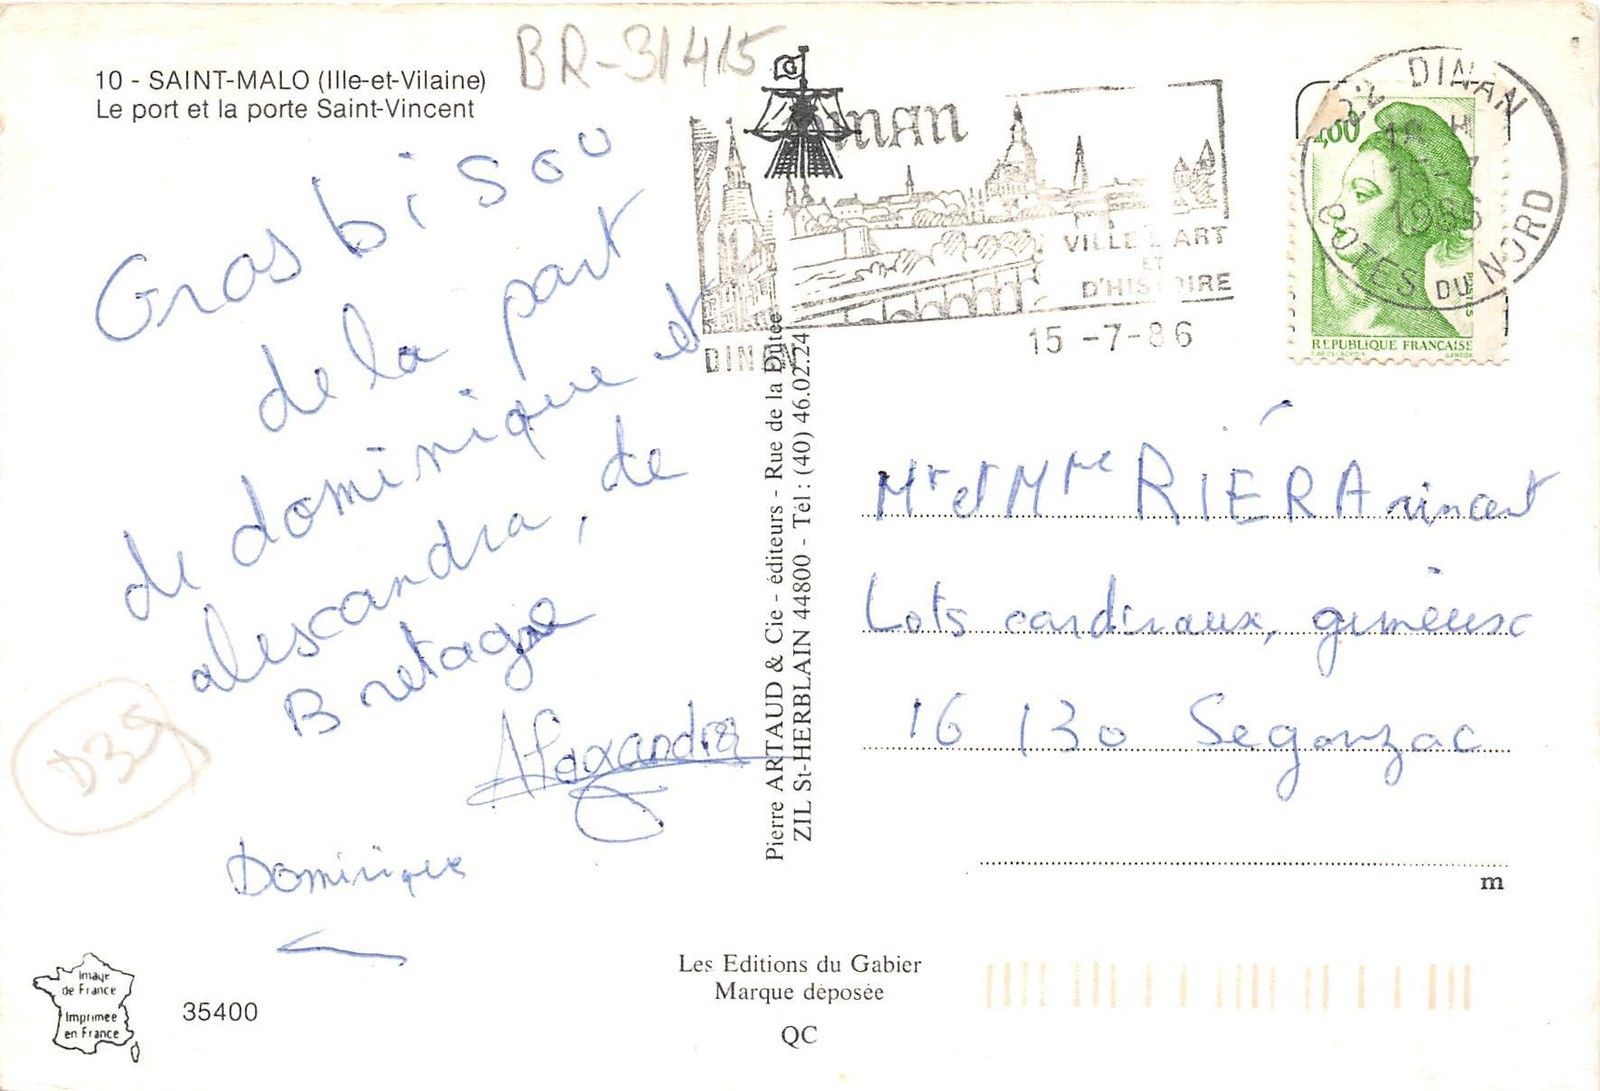 BR-31415
10 - SAINT-MALO (Ille-et-Vilaine)
Le port et la porte Saint-Vincent
Gros bisou
de la part
de dominique et
alescandra, de
Bretagne
Alexandra
Dominique
D35
Image
de France
Imprimée
en France
35400
Pierre ARTAUD & Cie - éditeurs - Rue de la Dutée
ZIL St-HERBLAIN 44800 - Tél : (40) 46.02.24
Les Editions du Gabier
Marque déposée
QC
DINAN
VILLE D'ART
ET
D'HISTOIRE
15 -7-86
22 DINAN
1986
COTES DU NORD
REPUBLIQUE FRANÇAISE
Mr et Mme RIÉRA vincent
Lots cardinaux, gimeux
16 130 Segonzac
m